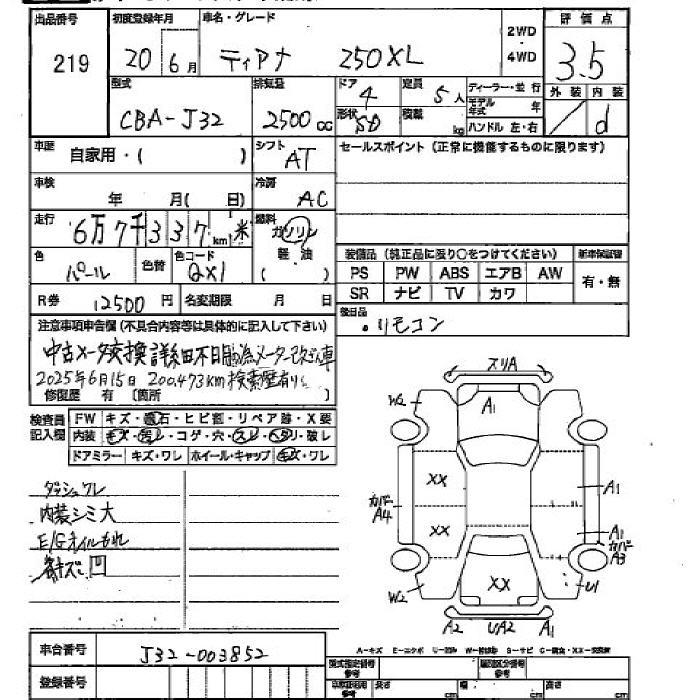 出品番号 初度登録年月 車名・グレード 2WD・4WD 評価点
219 20 6月 ティアナ 250XL 3.5
型式 排気量 ドア 4 定員 5人 ディーラー・並行 外装 内装
CBA-J32 2500cc 形状 SD 積載 kg モデル年式 年 ハンドル 左・右 d
車歴 自家用・( ) シフト AT セールスポイント (正常に機能するものに限ります)
車検 年 月( 日) 冷房 AC
走行 6万7千337km 米 燃料 ガソリン 軽・油 ( )
色 パール 色替 色コード QX1
装備品 (純正品に限り○をつけてください) 新車保証書
PS PW ABS エアB AW 有・無
SR ナビ TV カワ
R券 12500円 名変期限 月 日
後日品 リモコン
注意事項申告欄 (不具合内容等は具体的に記入して下さい)
中古メータ交換詳細不明の為メーター改ざん車
2025年6月15日 200,473km 検索歴有り
修復歴 有 (箇所 )
検査員記入欄 FW キズ・飛石・ヒビ割・リペア跡・X要
内装 キズ・汚レ・コゲ・穴・スレ・ヘタリ・破レ
ドアミラー キズ・ワレ ホイール・キャップ キズ・ワレ
ダッシュワレ
内装シミ大
E/Gオイルもれ
キズ
スリA
W2 A1
XX A1
カバーA4
XX A1 カバーA3
W2 XX U1
A2 UA2 A1
車台番号 J32-003852
登録番号
A-キズ E-エクボ U-凹み W-補修跡 S-サビ C-腐食・XX-交換済
型式指定番号 参考 類別区分番号 参考
長さ cm 幅 cm 高さ cm